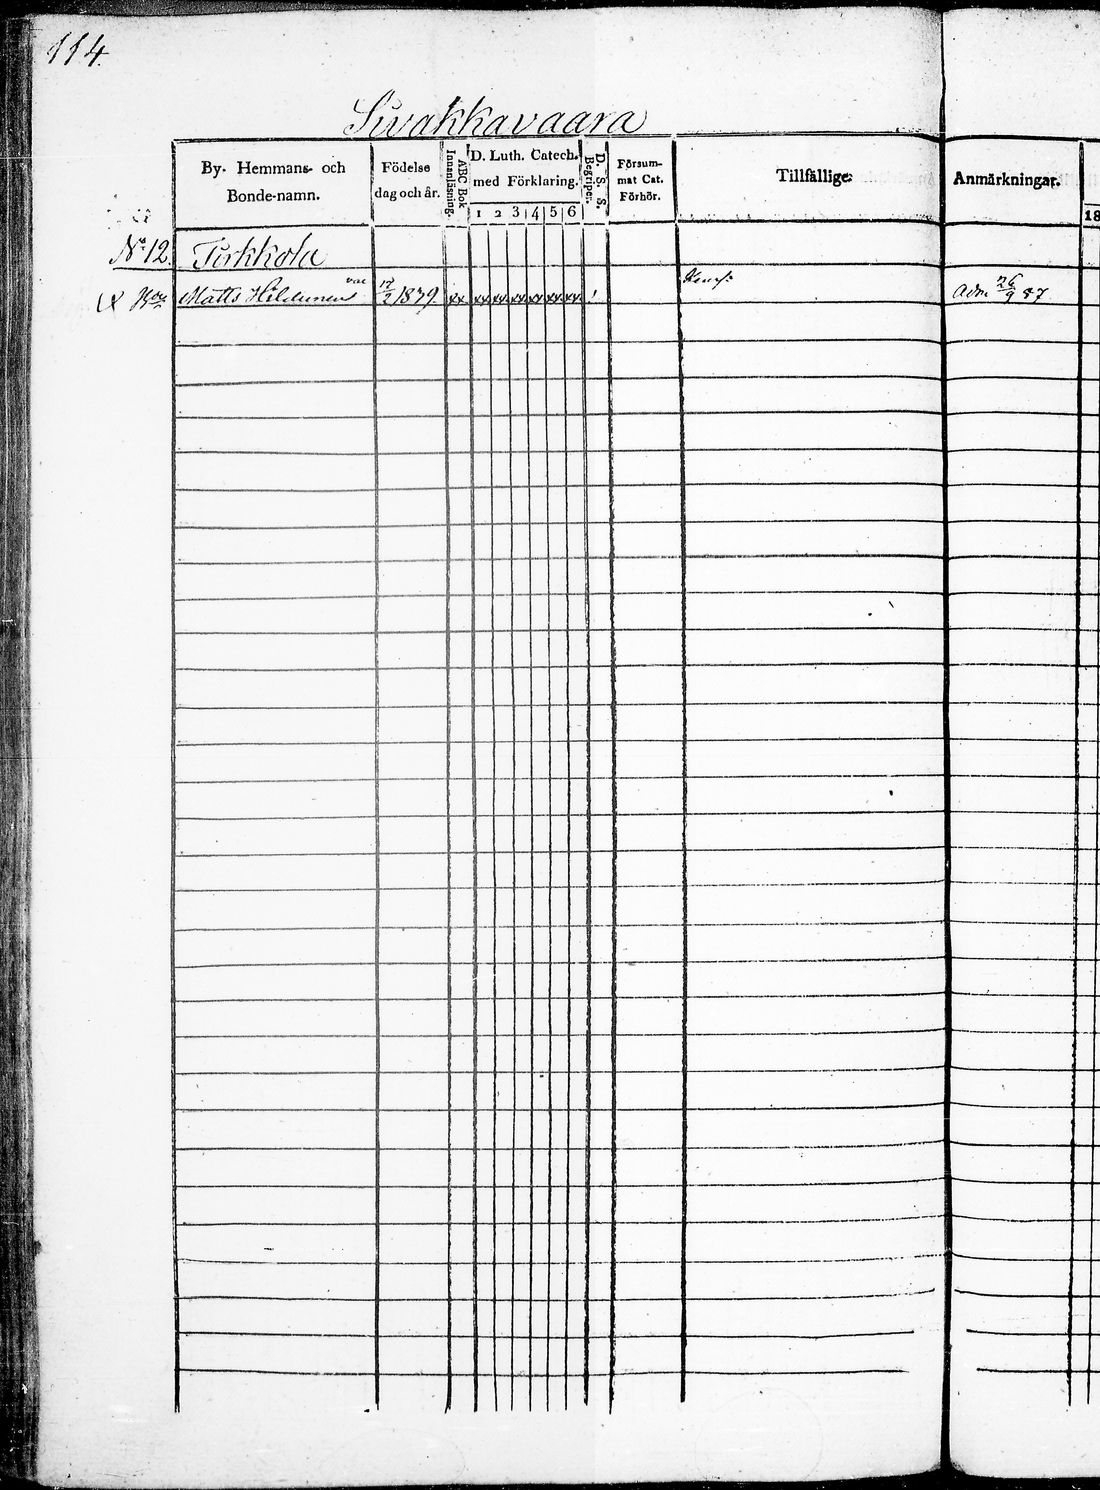 114.
Sivakkavaara
By. Hemmans- och Bonde-namn.
Födelse dag och år.
ABC Bok Innanläsning.
D. Luth. Catech. med Förklaring.
1 2 3 4 5 6
D. S. S. Begriper.
Försummat Cat. Förhör.
Tillfällige
Anmärkningar.
18
No 12. Turkkola
Matts 17/2 1839. xx xx xx xx xx xx xx Adm 26/9 57